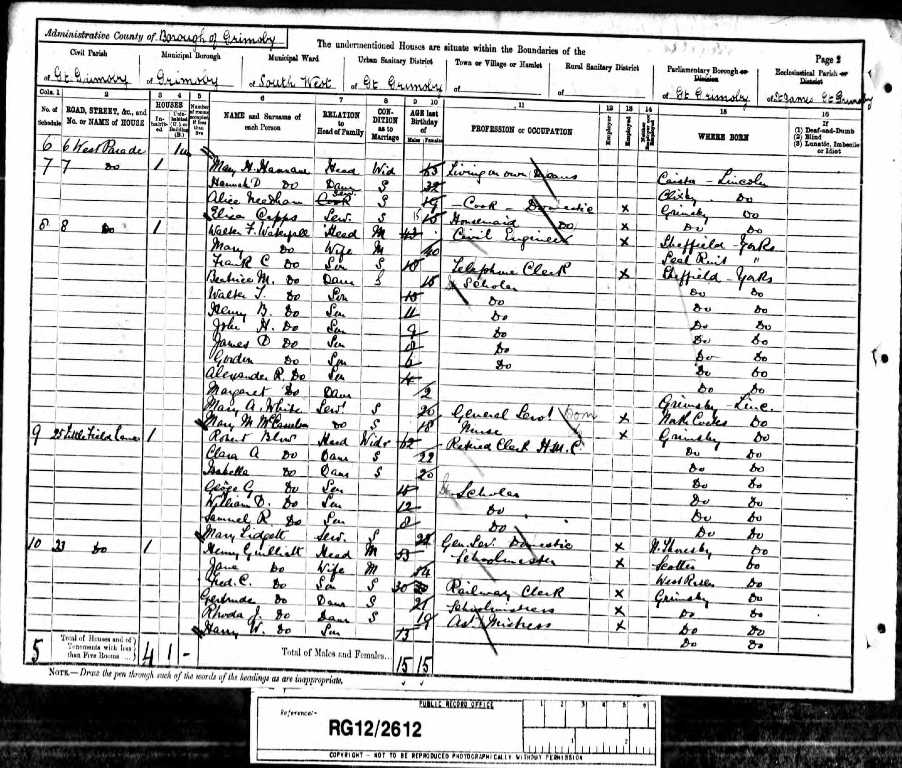 Administrative County of Borough of Grimsby
The undermentioned Houses are situate within the Boundaries of the
Page 2
Civil Parish Municipal Borough Municipal Ward Urban Sanitary District Town or Village or Hamlet Rural Sanitary District Parliamentary Borough or Division Ecclesiastical Parish or District
of Gt Grimsby of Grimsby of South West of Gt Grimsby of of of Gt Grimsby of St James Gt Grimsby
Cols. 1 2 3 4 5 6 7 8 9 10 11 12 13 14 15 16
No. of Schedule ROAD, STREET, &c., and No. or NAME of HOUSE HOUSES NAME and Surname of each Person RELATION to Head of Family CONDITION as to Marriage AGE last Birthday of Males Females PROFESSION or OCCUPATION Employer Employed WHERE BORN (1) Deaf-and-Dumb (2) Blind (3) Lunatic, Imbecile or Idiot
6 6 West Parade
7 7 Do 1 Mary H. Head Wid Living on own Means Caistor - Lincoln
Hannah D Do Daur S Clixby Do
Alice Needham Cook S 19 Cook - Domestic x Grimsby Do
Eliza Capps Serv. S 15 Housemaid Do x Do Do
8 8 Do 1 Walter F. Head M 43 Civil Engineer x Sheffield Yorks
Mary Do Wife M 40
Frank C Do Son S 18 Telephone Clerk x Sheffield Yorks
Beatrice M. Do Daur S 15 Scholar Do Do
Walter T. Do Son Do Do Do
Henry B. Do Son 11 Do Do Do
John H. Do Son 9 Do Do Do
James D Do Son Do Do Do
Gordon Do Son 6 Do Do Do
Alexander R. Do Son 4 Do Do
Margaret Do Daur 2 Grimsby Linc.
Mary A. White Servt S 20 General Servt Dom x North Cotes Do
Mary M. Do S 18 Nurse x Grimsby Do
9 25 Littlefield Lane 1 Robert Head Widr 62 Retired Clerk H.M.C. Do Do
Clara A Do Daur S 22 Do Do
Isabella Do Daur S 20 Do Do
George G. Do Son 15 Scholar Do Do
William D. Do Son 12 Do Do Do
Samuel R. Do Son 8 Do Do Do
Mary Lidgett Serv. S Gen. Ser. Domestic x N. Thoresby Do
10 23 Do 1 Henry Head M 53 Schoolmaster x Scotter Do
Jane Do Wife M 54 Do
Fred. C. Do Son S 30 Railway Clerk x Grimsby Do
Gertrude Do Daur S 21 Schoolmistress x Do Do
Rhoda J. Do Daur S 19 Ast Mistress x Do Do
Harry W. Do Son 13 Do Do
5 Total of Houses and of Tenements with less than Five Rooms 4 1 - Total of Males and Females... 15 15
NOTE.—Draw the pen through such of the words of the headings as are inappropriate.
PUBLIC RECORD OFFICE
Reference:-
RG12/2612
1 2 3 4 5 6
1 2
COPYRIGHT - NOT TO BE REPRODUCED PHOTOGRAPHICALLY WITHOUT PERMISSION